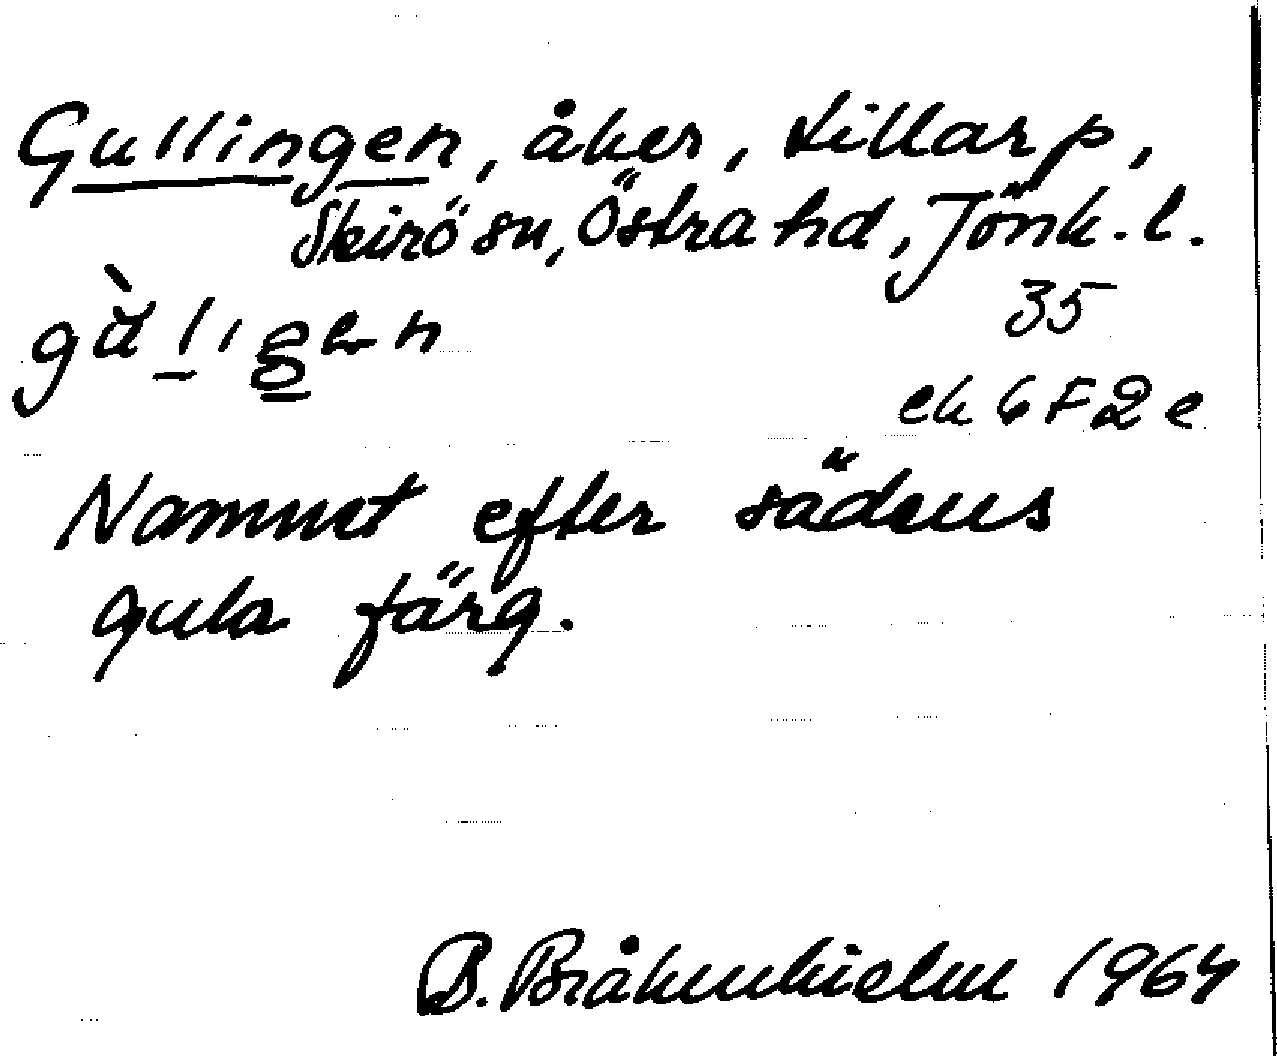 Gullingen, åker, Lillarp,
Skirö sn, Östra hd, Jönk. l.
35
ek 6 F 2 e
Namnet efter sädens
gula färg.
B. Bråkenhielm 1964